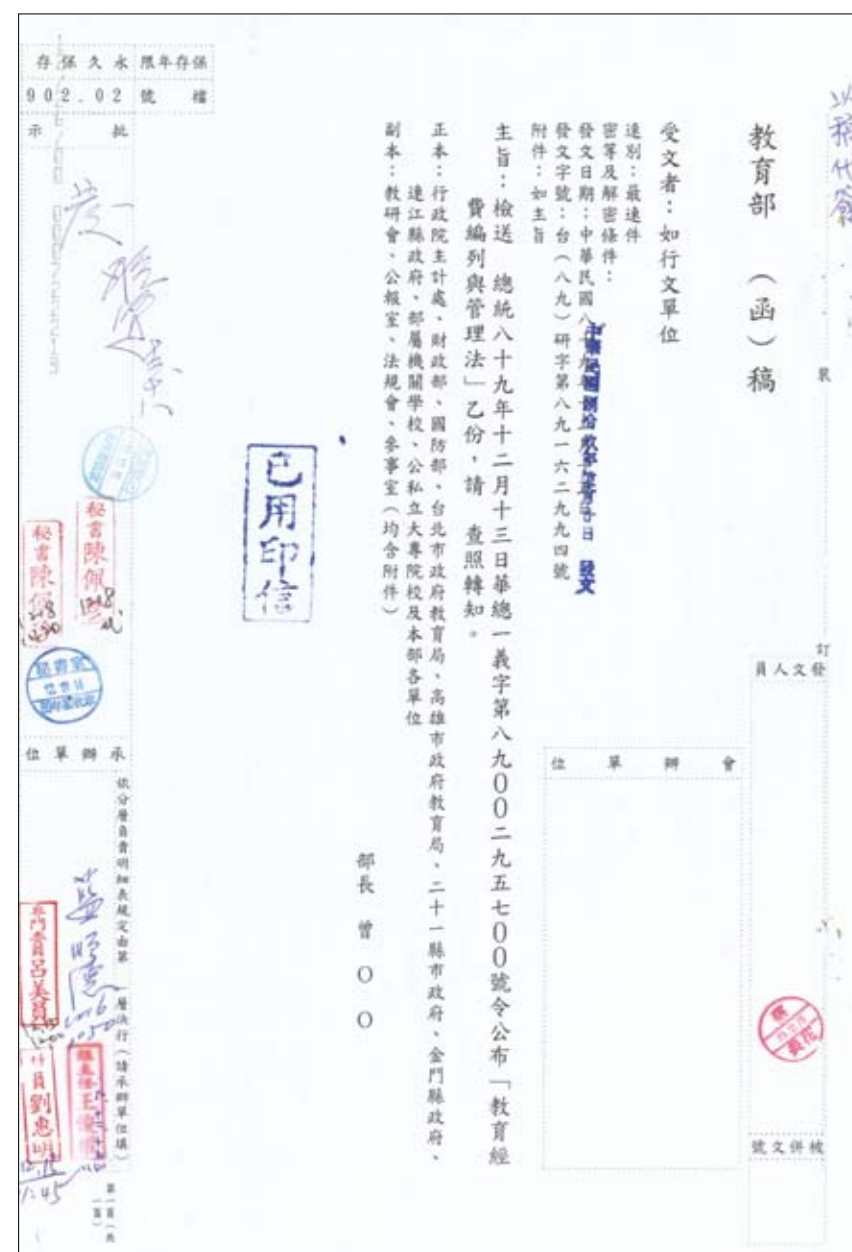 以稿代簽
教育部　（函）稿
受文者：如行文單位
速別：最速件
密等及解密條件：
發文日期：中華民國八十九年
發文
發文字號：台（八九）研字第八九一六二九九四號
附件：如主旨
主旨：檢送　總統八十九年十二月十三日華總一義字第八九００二九五七００號令公布「教育經
費編列與管理法」乙份，請　查照轉知。
正本：行政院主計處、財政部、國防部、台北市政府教育局、高雄市政府教育局、二十一縣市政府、金門縣政府、
連江縣政府、部屬機關學校、公私立大專院校及本部各單位
副本：教研會、公報室、法規會、參事室（均含附件）
部長　曾　○　○
已用印信
裝
訂
發文人員
被併文號
會辦單位
保存年限
永久保存
檔號
902.02
批示
秘書陳佩
秘書陳佩
秘書室
承辦單位
依分層負責明細表規定由第　層決行（請承辦單位填）
專門委員呂美員
員劉惠明
12.15
1:45
第一頁（共一頁）